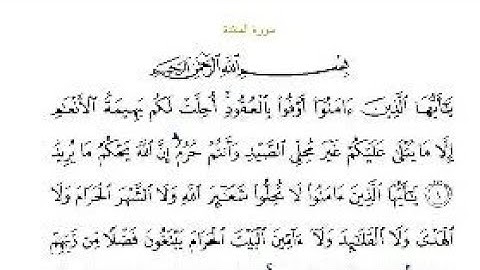 سورة المائدة
بسم الله الرحمن الرحيم
يَٰٓأَيُّهَا ٱلَّذِينَ ءَامَنُوٓا۟ أَوْفُوا۟ بِٱلْعُقُودِ ۚ أُحِلَّتْ لَكُم بَهِيمَةُ ٱلْأَنْعَٰمِ
إِلَّا مَا يُتْلَىٰ عَلَيْكُمْ غَيْرَ مُحِلِّى ٱلصَّيْدِ وَأَنتُمْ حُرُمٌ ۗ إِنَّ ٱللَّهَ يَحْكُمُ مَا يُرِيدُ
﴿١﴾ يَٰٓأَيُّهَا ٱلَّذِينَ ءَامَنُوا۟ لَا تُحِلُّوا۟ شَعَٰٓئِرَ ٱللَّهِ وَلَا ٱلشَّهْرَ ٱلْحَرَامَ وَلَا
ٱلْهَدْىَ وَلَا ٱلْقَلَٰٓئِدَ وَلَآ ءَآمِّينَ ٱلْبَيْتَ ٱلْحَرَامَ يَبْتَغُونَ فَضْلًا مِّن رَّبِّهِمْ